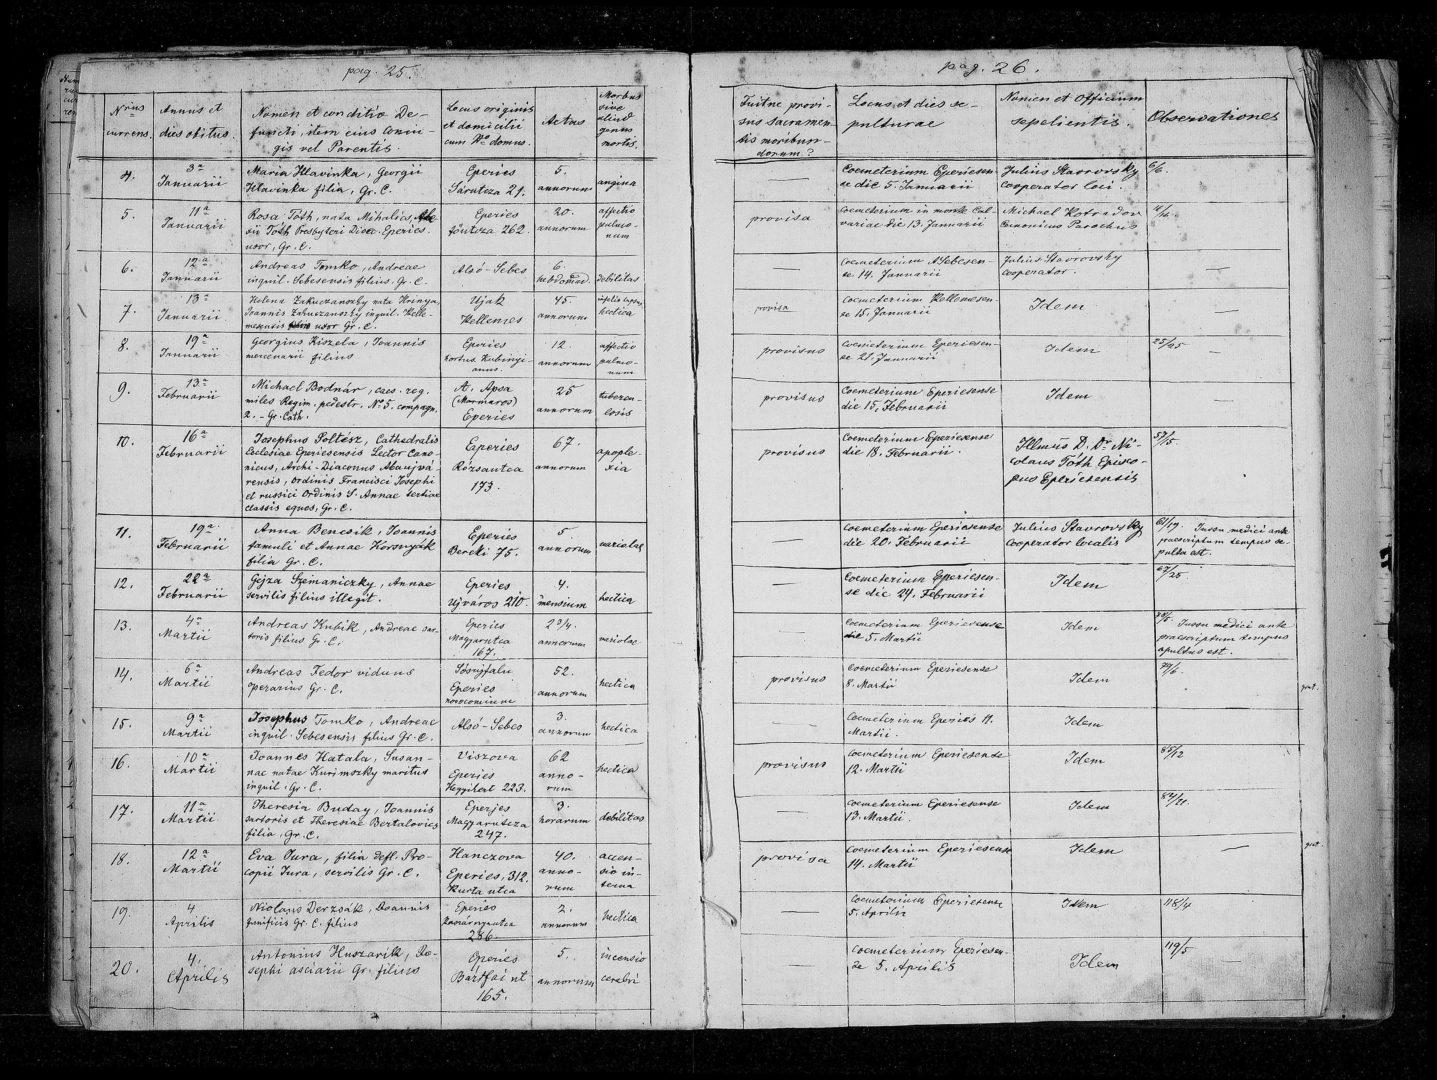 pag. 25.
Nrus currens.
Annus et dies obitus.
Nomen et conditio Defuncti, item eius Coniugis vel Parentis.
Locus originis et domicilii cum Nro domus.
Aetas
Morbus sive aliud genus mortis.
4.
3a Januarii
Maria Hlavinka, Georgii
Hlavinka filia, Gr. C.
Eperies
Sárutcza 21.
5.
annorum
angina
5.
11a Januarii
Rosa Tóth, nata Mihalics,
Tóth Presbyteri Dioec. Eperies.
uxor, Gr. C.
Eperies
főutcza 262.
20.
annorum
affectio
pulmonum
6.
12a Januarii
Andreas Tomko, Andreae
inquil. Sebesensis filius. Gr. C.
Alsó-Sebes
6.
hebdomad.
debilitas
7.
13a Januarii
Helena Zakuczanszky nata Hrinya,
Joannis Zakuczanszky inquil. Kellemesensis
uxor Gr. C.
Ujak
Kellemes
45.
annorum
hectica
8.
19a Januarii
Georgius Kiszela, Joannis
mercenarii filius
Eperies
hortus Kubinyianus.
12.
annorum
affectio
pulmonum
9.
13a Februarii
Michael Bodnár, caes. reg.
miles Regim. pedestr. No 5. compagn.
2. - Gr. Cath.
A. Apsa
(Mormaros)
Eperies
25
annorum
tuberculosis
10.
16a Februarii
Josephus Soltész, Cathedralis
Ecclesiae Eperiesensis Lector Canonicus,
Archi-Diaconus Abaujvárensis,
ordinis Francisci Josephi
et russici Ordinis S. Annae tertiae
classis eques, Gr. C.
Eperies
Rózsautca
173.
67.
annorum
apoplexia
11.
19a Februarii
Anna Bencsik, Joannis
famuli et Annae Korsnyák
filia Gr. C.
Eperies
Bereki 75.
5.
annorum
variolae
12.
22a Februarii
Géjza Szimaniczky, Annae
servilis filius illegit.
Eperies
Ujváros 210.
4.
mensium
hectica
13.
4a Martii
Andreas Kubik, Andreae sartoris
filius Gr. C.
Eperies
Magyarutca
167.
2 3/4.
annorum
variolae
14.
6a Martii
Andreas Fedor viduus
operarius Gr. C.
Sósujfalu
Eperies
52.
annorum
hectica
15.
9a Martii
Josephus Tomko, Andreae
inquil. Sebesensis filius Gr. C.
Alsó-Sebes
3.
annorum
hectica
16.
10a Martii
Joannes Hatala, Susannae
natae Kurimszky maritus
inquil. Gr. C.
Viszova
Eperies
Hegyikert 223.
62
annorum
hectica
17.
11a Martii
Theresia Buday, Joannis
sartoris et Theresiae Bertalovics
filia, Gr. C.
Eperjes
Magyarutcza
247.
3.
horarum
debilitas
18.
12a Martii
Eva Jura, filia defl. Procopii
Jura, servilis Gr. C.
Hanczova
Eperies, 312.
Kurta utca
40.
annorum
accensio interna
19.
4 Aprilis
Nicolaus Derzsák, Joannis
funificis Gr. C. filius
Eperies
286.
2.
annorum
hectica
20.
4. Aprilis
Antonius Huszarik, Josephi
asciarii Gr. filius
Eperies
Bártfai ut
165.
5.
annorum
incensio
cerebri
pag. 26.
Fuitne provisus Sacramentis moribundorum?
Locus et dies sepulturae
Nomen et Officium sepelientis.
Observationes
—
Coemeterium Eperiesense
die 5. Januarii
Julius Stavrovszky
cooperator loci.
6/6.
—
provisa
Coemeterium in monte Calvariae
die 13. Januarii
Michael Kotradov
Canonicus Parochus
—
—
Coemeterium ASebesense
14. Januarii
Julius Stavrovsky
cooperator.
—
provisa
Coemeterium Kellemesense
15. Januarii
Idem
—
provisus
Coemeterium Eperiesense
21. Januarii
Idem
25/25
—
provisus
Coemeterium Eperiesense
die 15. Februarii
Idem
—
provisus
Coemeterium Eperiesense
die 18. Februarii.
Illmus D. Dr Nicolaus
Tóth Episcopus
Eperiesensis
57/15.
—
—
Coemeterium Eperiesense
die 20. Februarii
Julius Stavrovszky
Cooperator localis
61/19. Jussu medici ante
praescriptum tempus sepulta
est.
—
Coemeterium Eperiesense
die 24. Februarii
Idem
67/25
—
—
Coemeterium Eperiesense
die 5. Martii
Idem
Jussu medici ante
praescriptum tempus
sepultus est.
provisus
Coemeterium Eperiesense
8. Martii
Idem
79/6.
grat.
—
Coemeterium Eperies 11.
Martii.
Idem
provisus
Coemeterium Eperiesense
12. Martii
Idem
85/12
—
Coemeterium Eperiesense
13. Martii
Idem
provisa
Coemeterium Eperiesense
14. Martii
Idem
—
grat
—
Coemeterium Eperiesense
5. Aprilis
Idem
118/4
—
Coemeterium Eperiesense
5. Aprilis
Idem
119/5
—